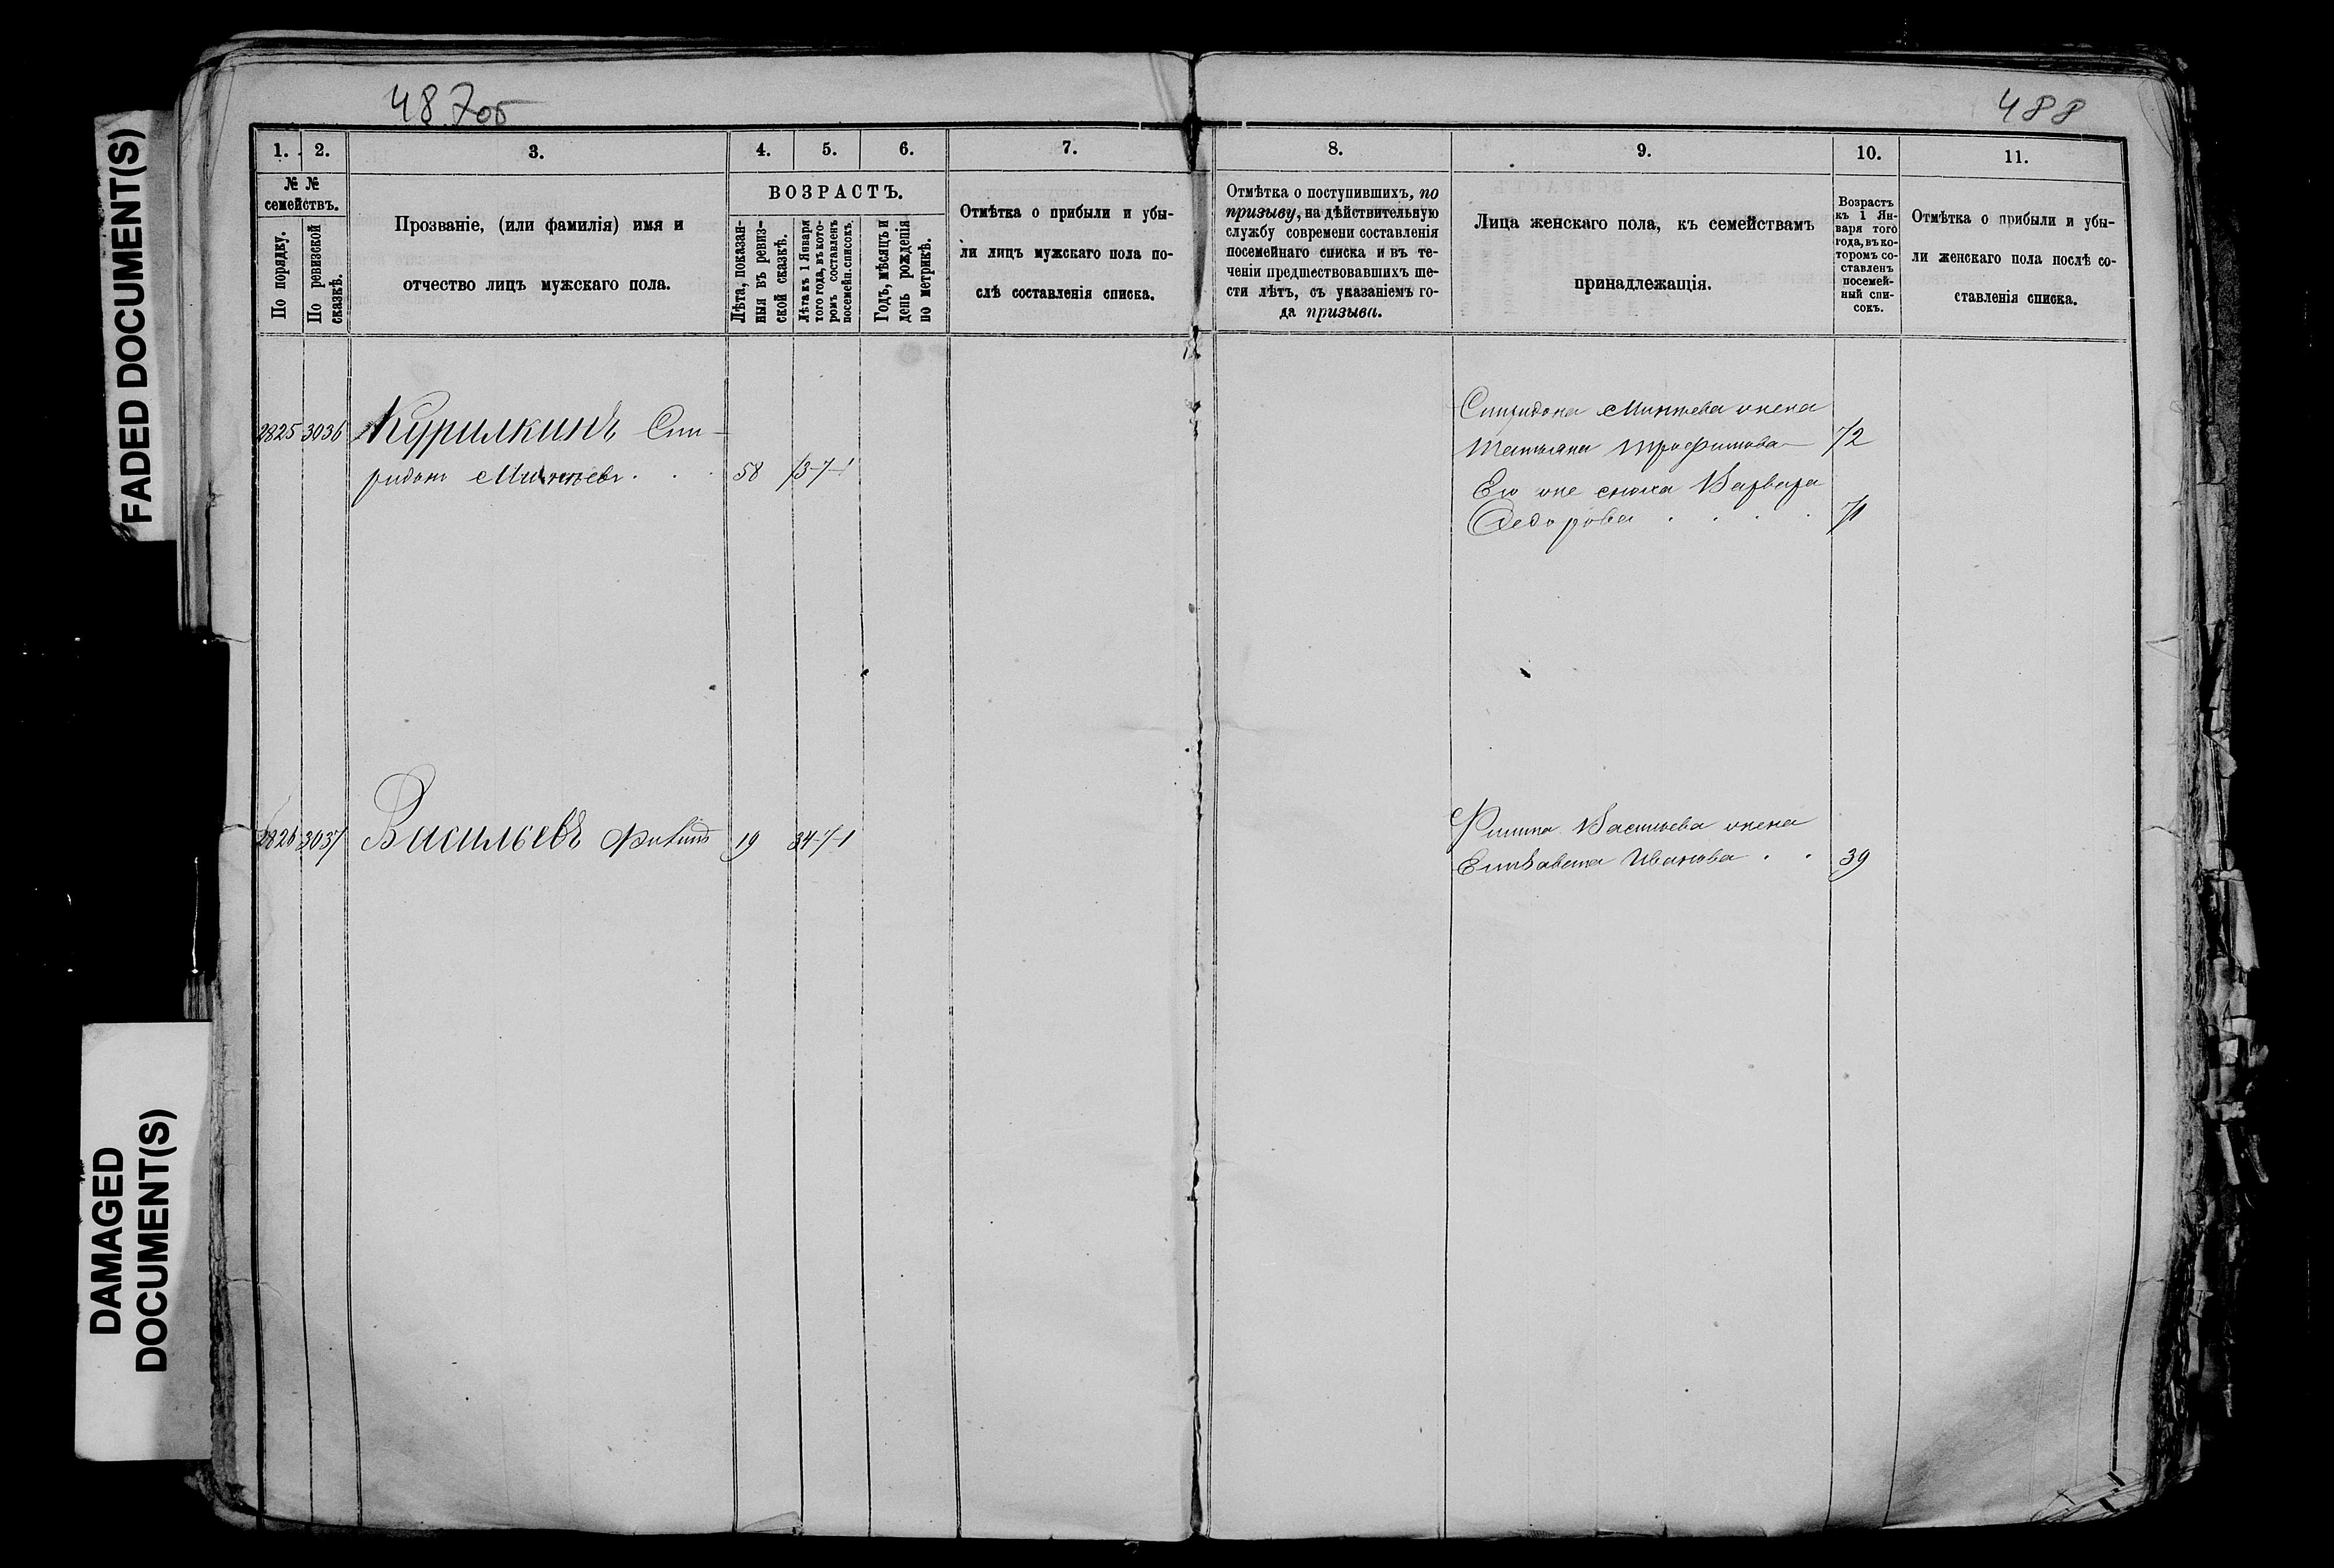 FADED DOCUMENT(S)
DAMAGED
DOCUMENT(S)
487об
1. 2. 3. 4. 5. 6. 7.
№ №
семействъ.
По порядку.
По ревизской
сказкѣ.
Прозваніе, (или фамилія) имя и
отчество лицъ мужскаго пола.
ВОЗРАСТЪ.
Лѣта, показан-
ныя въ ревиз-
ской сказкѣ.
Лѣта къ 1 Января
того года, въ кото-
ромъ составленъ
посемейн. списокъ.
Годъ, мѣсяцъ и
день рожденія
по метрикѣ.
Отмѣтка о прибыли и убы-
ли лицъ мужскаго пола по-
слѣ составленія списка.
2825 3036 Курилкинъ Спи-
ридонъ 58 73-7-1
2826 3037 Васильевъ 19 34-7-1
488
8. 9. 10. 11.
Отмѣтка о поступившихъ, по
призыву, на дѣйствительную
службу современи составленія
посемейнаго списка и въ те-
ченіи предшествовавшихъ ше-
сти лѣтъ, съ указаніемъ го-
да призыва.
Лица женскаго пола, къ семействамъ
принадлежащія.
Возрастъ
къ 1 Ян-
варя того
года, въ ко-
торомъ со-
ставленъ
посемей-
ный спи-
сокъ.
Отмѣтка о прибыли и убы-
ли женскаго пола послѣ со-
ставленія списка.
Спиридона жена
Татьяна Трофимова 72
Его же сноха Варвара
Федорова 71
Филипа Васильева жена
Елизавета Иванова 39